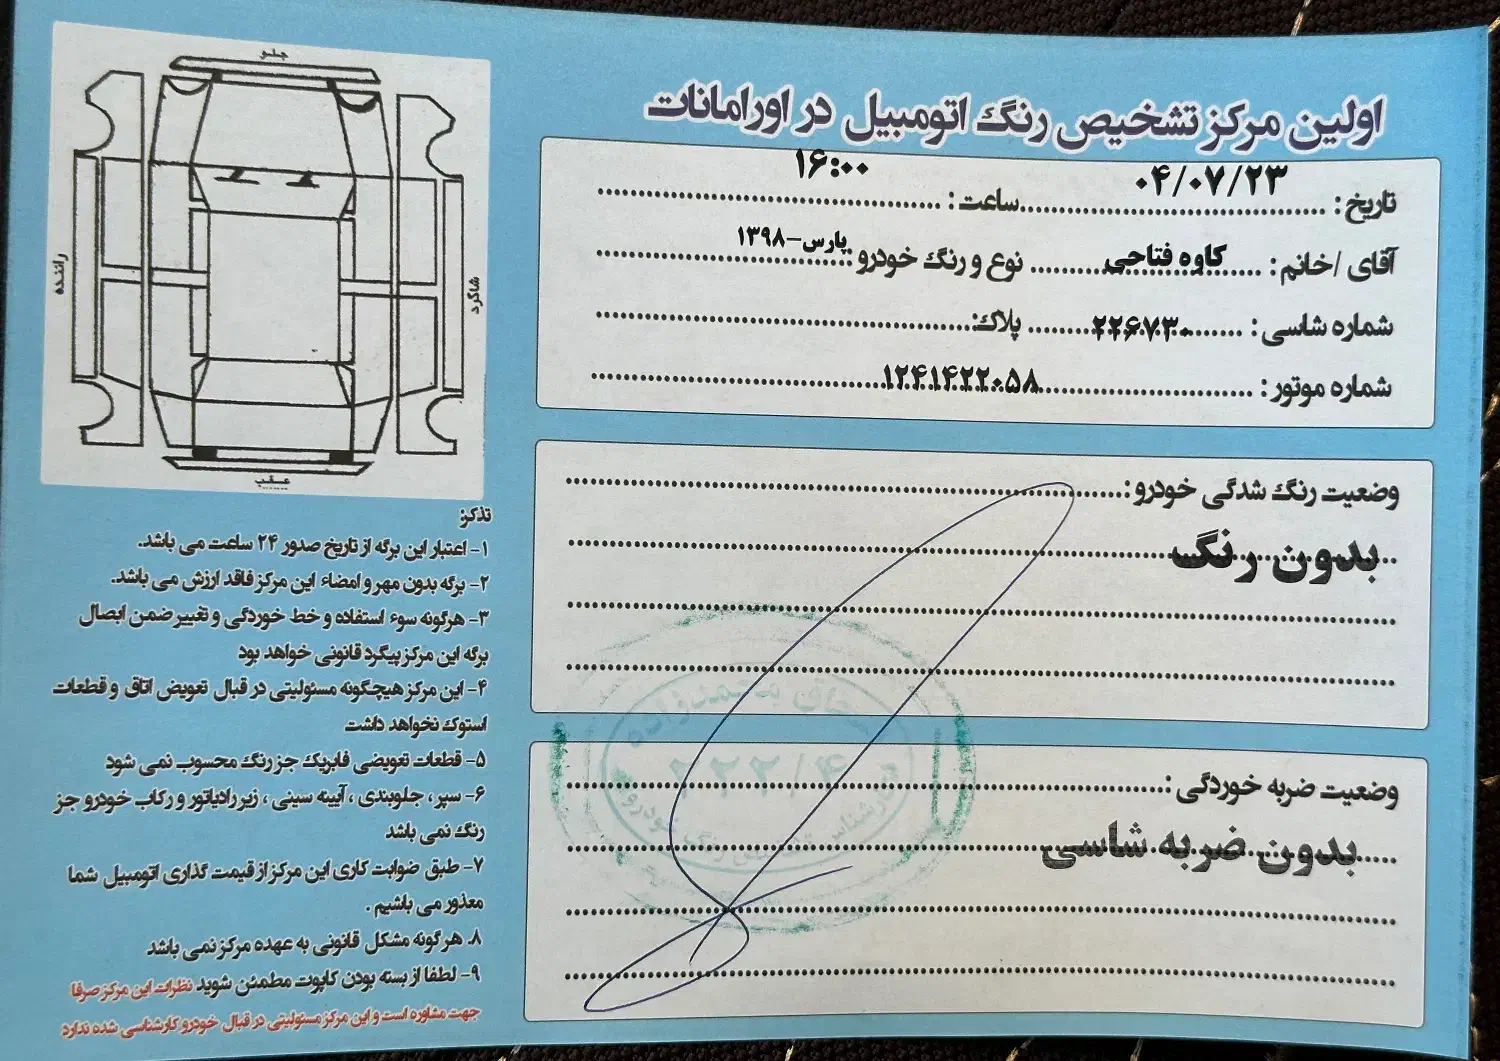 اولین مرکز تشخیص رنگ اتومبیل در اورامانات
تاریخ: ۰۴/۰۷/۲۳ ساعت: ۱۶:۰۰
آقای /خانم: کاوه فتاحی نوع و رنگ خودرو: پارس-۱۳۹۸
شماره شاسی: ۲۲۶۷۳۰ پلاک:
شماره موتور: ۱۲۴۱۴۲۲۰۵۸
وضعیت رنگ شدگی خودرو:
بدون رنگ
وضعیت ضربه خوردگی:
بدون ضربه شاسی
محمدزاده
جلو
راننده
شاگرد
عقب
تذکر:
۱- اعتبار این برگه از تاریخ صدور ۲۴ ساعت می باشد.
۲- برگه بدون مهر و امضاء این مرکز فاقد ارزش می باشد.
۳- هرگونه سوء استفاده و خط خوردگی و تغییر ضمن ابصال
برگه این مرکز پیگرد قانونی خواهد بود
۴- این مرکز هیچگونه مسئولیتی در قبال تعویض اتاق و قطعات
استوک نخواهد داشت
۵- قطعات تعویضی فابریک جز رنگ محسوب نمی شود
۶- سپر ، جلوبندی ، آیینه سینی ، زیر رادیاتور و رکاب خودرو جز
رنگ نمی باشد
۷- طبق ضوابت کاری این مرکز از قیمت گذاری اتومبیل شما
معذور می باشیم .
۸. هرگونه مشکل قانونی به عهده مرکز نمی باشد
۹- لطفا از بسته بودن کاپوت مطمئن شوید نظرات این مرکز صرفا
جهت مشاوره است و این مرکز مسئولیتی در قبال خودرو کارشناسی شده ندارد